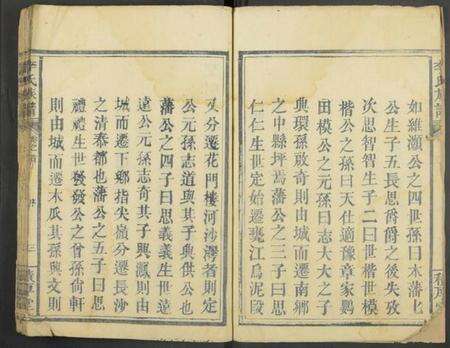 如維灝公之四世孫曰木藩七
公生子五長思爵爵之後失攷
次思智智生子二曰世楷世模
楷公之孫曰天仕適豫章家鸚
田模公之元孫曰志大大之子
典環孫敢奇則由城而遷南鄉
之中縣坪焉藩公之三子曰思
仁仁生世定始遷甕江烏泥段
又分遷花門樓河沙灣者則定
公元孫志道與其子興供公也
藩公之四子曰思義義生世遠
遠公元孫志奇其子興鳳則由
城而遷下鄉指尖嶺分遷長沙
之清泰都也藩公之五子曰思
禮禮生世發發公之曾孫尚軒
則由城而遷木瓜其孫興文則
李氏族譜